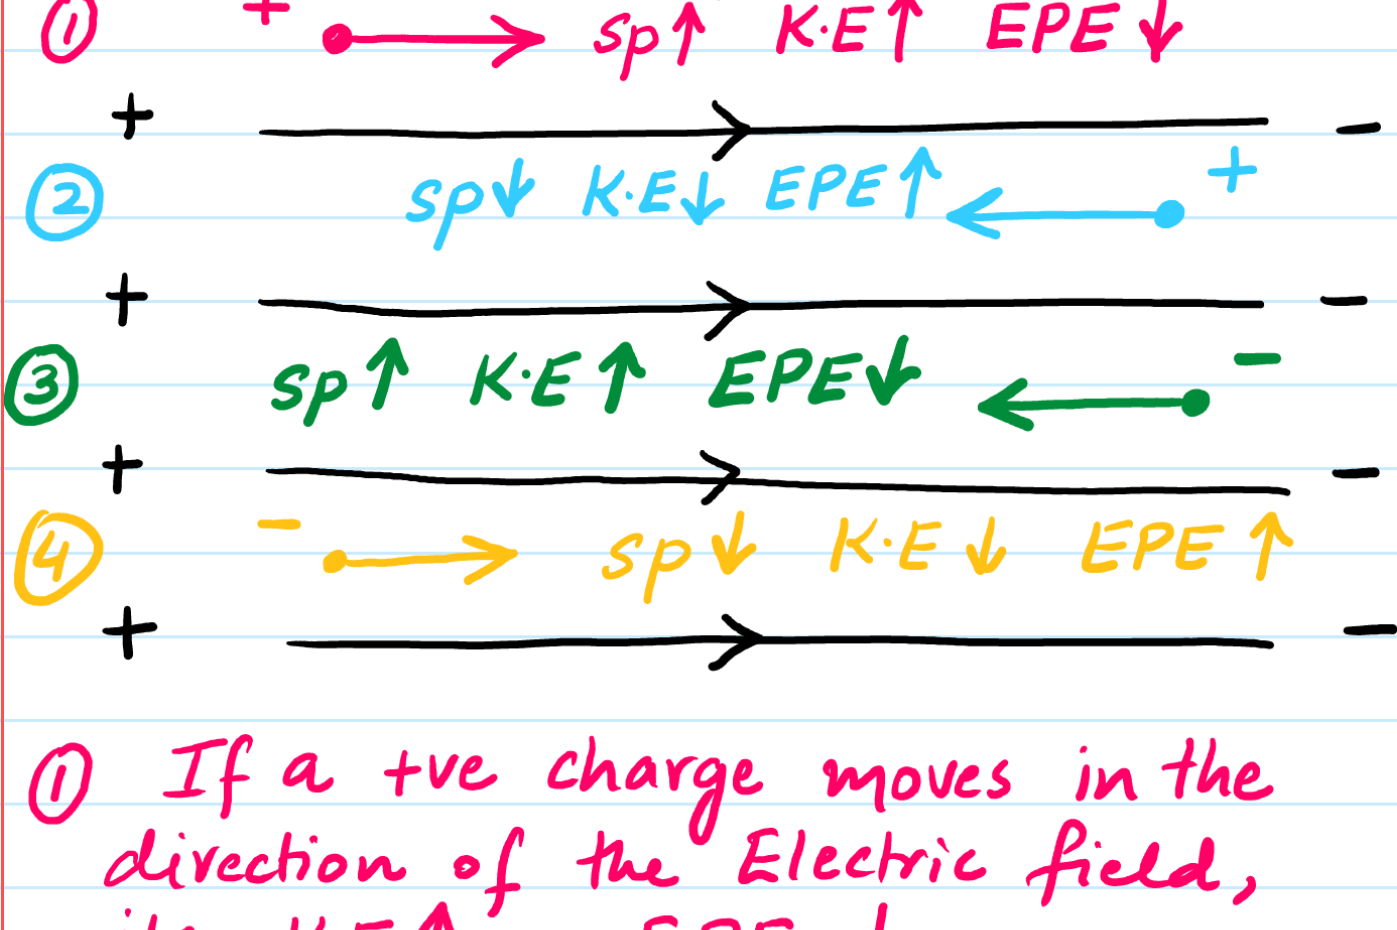 ① + sp↑ K.E↑ EPE↓
+ -
② sp↓ K.E↓ EPE↑ +
+ -
③ sp↑ K.E↑ EPE↓ -
+ -
④ - sp↓ K.E↓ EPE↑
+ -
① If a +ve charge moves in the
direction of the Electric field,
its K.E↑ EPE↓